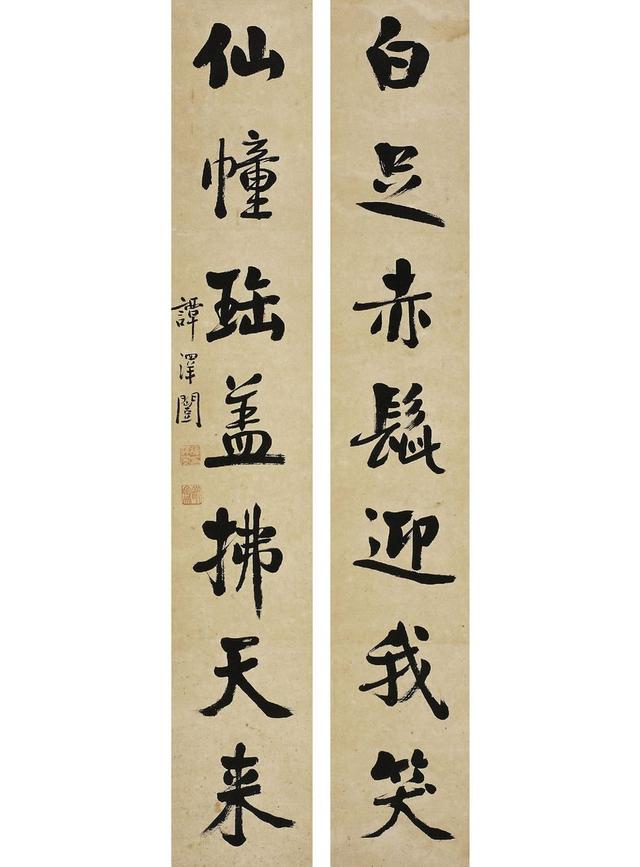 白足赤髭迎我笑
仙幢瑶盖拂天来
譚澤闓